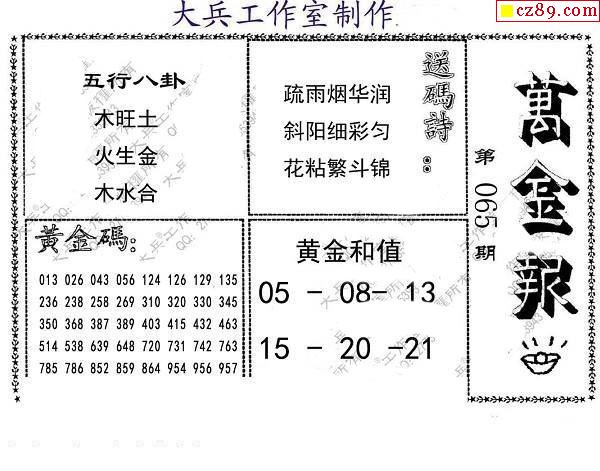 大兵工作室制作
cz89.com
五行八卦
木旺土
火生金
木水合
送碼詩：
疏雨烟华润
斜阳细彩匀
花粘繁斗锦
萬金報
第065期
黃金碼：
013 026 043 056 124 126 129 135
236 238 258 269 310 320 330 345
350 368 387 389 403 415 432 463
514 538 639 648 720 731 742 763
785 786 852 859 864 954 956 957
黄金和值
05 - 08- 13
15 - 20 -21